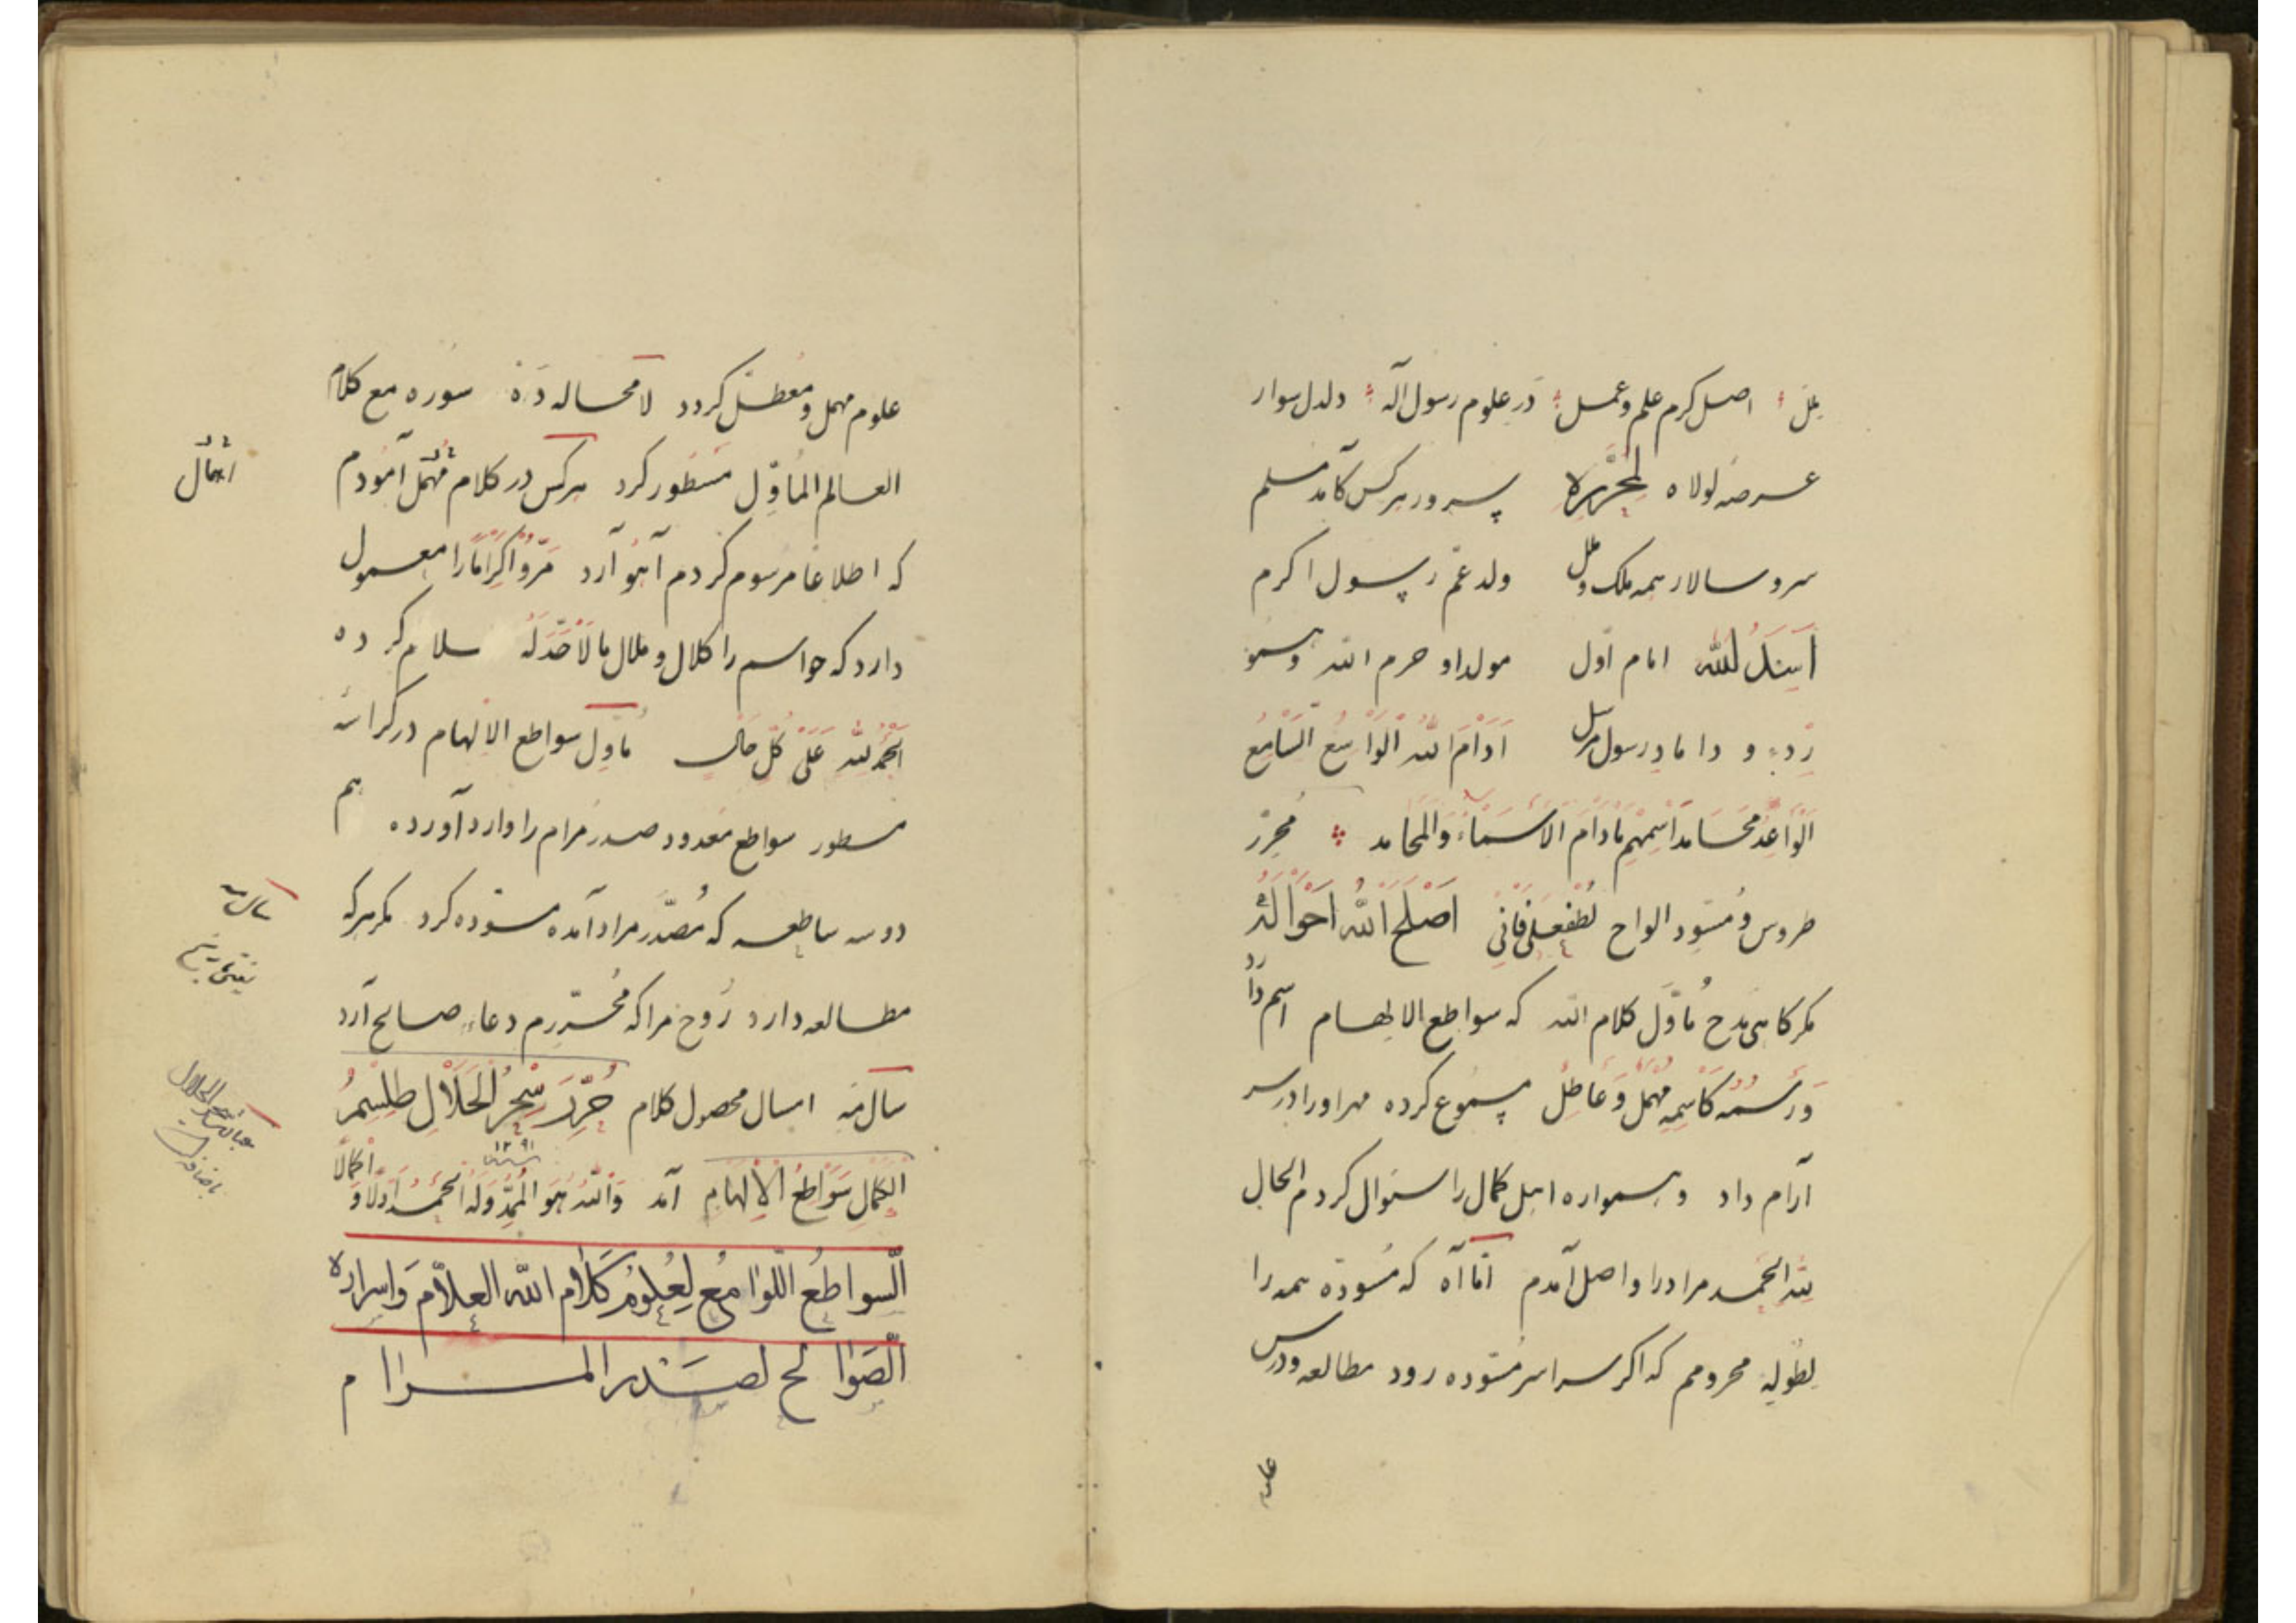 علل اصل کرم علم وعمل در علوم رسول اله دلدل سوار
عرصه لولاه لمحرره سرور هرکس کآمد مسلم
سرو سالار همه ملک و ملل ولد عم رسول اکرم
اسدالله امام اول مولد او حرم الله و سمو
ردء و داماد رسول مرسل ادام الله الواسع السامع
الواعد محامد اسمهم مادام الاسماء والمحامد محرر
طروس و مسود الواح لطفعلی فانی اصلح الله احواله
مکر کاهی مدح ماول کلام الله که سواطع الالهام اسم دارد
ورسمه کاسمه مهمل وعاطل مسموع کرده مهر او را در سر
آرام داد و همواره اهل کمال را سئوال کردم الحال
لله الحمد مراد را واصل آمدم اما آه که مسوده همه را
لطوله محرومم که اکر سراسر مسوده رود مطالعه و درس
علوم مهمل و معطل کردد لامحاله ده سوره مع کلام
العالم الماول مسطور کرد هرکس در کلام مهمل آمودم
که اطلاعا مرسوم کردم آهو آرد مروا کراما را معمول
دارد که حواسم را کلال و ملال مالاحدله سلام کرده
الحمد لله علی کل حال ماول سواطع الالهام در کراسه
مسطور سواطع معدود صدر مرام را وارد آورده هم
دو سه ساطعه که مصدر مراد آمده مسوده کرد مکر هرکه
مطالعه دارد روح مرا که محررم دعاء صالح آرد
سال مه اسال محصول کلام حرر سحر الحلال طلسم
۱۲۹۱
الکمال سواطع الالهام آمد والله هو الممد وله الحمد اولا و اکمالا
السواطع اللوامع لعلوم کلام الله العلام واسراره
الصوالح لصدر المرام
اهمال